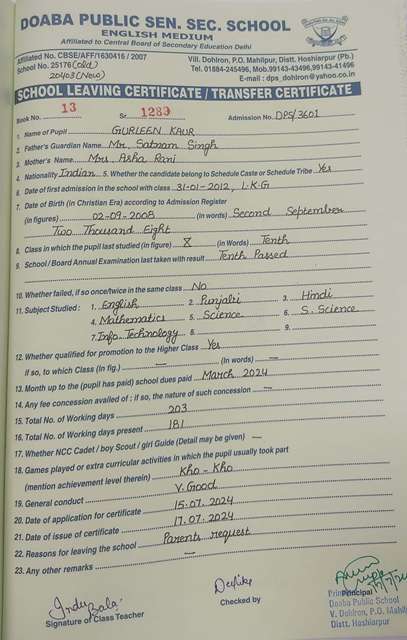 DOABA PUBLIC SEN. SEC. SCHOOL
ENGLISH MEDIUM
Affiliated to Central Board of Secondary Education Delhi
Affiliated No. CBSE/AFF/1630416 / 2007
School No. 25176 (old)
20403 (New)
Vill. Dohlron, P.O. Mahilpur, Distt. Hoshiarpur (Pb.)
Tel. 01884-245496, Mob.99143-43496,99143-41496
E-mail : dps_dohlron@yahoo.co.in
SCHOOL LEAVING CERTIFICATE / TRANSFER CERTIFICATE
Book No. 13 Sr. 1283 Admission No. DPS/3601
1. Name of Pupil GURLEEN KAUR
2. Father's Guardian Name Mr. Satnam Singh
3. Mother's Name Mrs. Asha Rani
4. Nationality Indian 5. Whether the candidate belong to Schedule Caste or Schedule Tribe Yes
6. Date of first admission in the school with class 31-01-2012, L.K.G
7. Date of Birth (in Christian Era) according to Admission Register
(in figures) 02-09-2008 (in words) Second September
Two Thousand Eight
8. Class in which the pupil last studied (in figure) X (in Words) Tenth
9. School / Board Annual Examination last taken with result Tenth Passed
10. Whether failed, if so once/twice in the same class No
11. Subject Studied : 1. English 2. Punjabi 3. Hindi
4. Mathematics 5. Science 6. S. Science
7. Info. Technology 8. 9.
12. Whether qualified for promotion to the Higher Class Yes
if so, to which Class (In fig.) — (In words) —
13. Month up to the (pupil has paid) school dues paid March 2024
14. Any fee concession availed of : if so, the nature of such concession —
15. Total No. of Working days 203
16. Total No. of Working days present 181
17. Whether NCC Cadet / boy Scout / girl Guide (Detail may be given) —
18. Games played or extra curricular activities in which the pupil usually took part
(mention achievement level therein) Kho-Kho
19. General conduct V. Good
20. Date of application for certificate 15.07.2024
21. Date of issue of certificate 17.07.2024
22. Reasons for leaving the school Parents request
23. Any other remarks —
Indu Bala
Signature of Class Teacher
Checked by
Principal
Doaba Public School
V. Dohlron, P.O. Mahil
Distt. Hoshiarpur